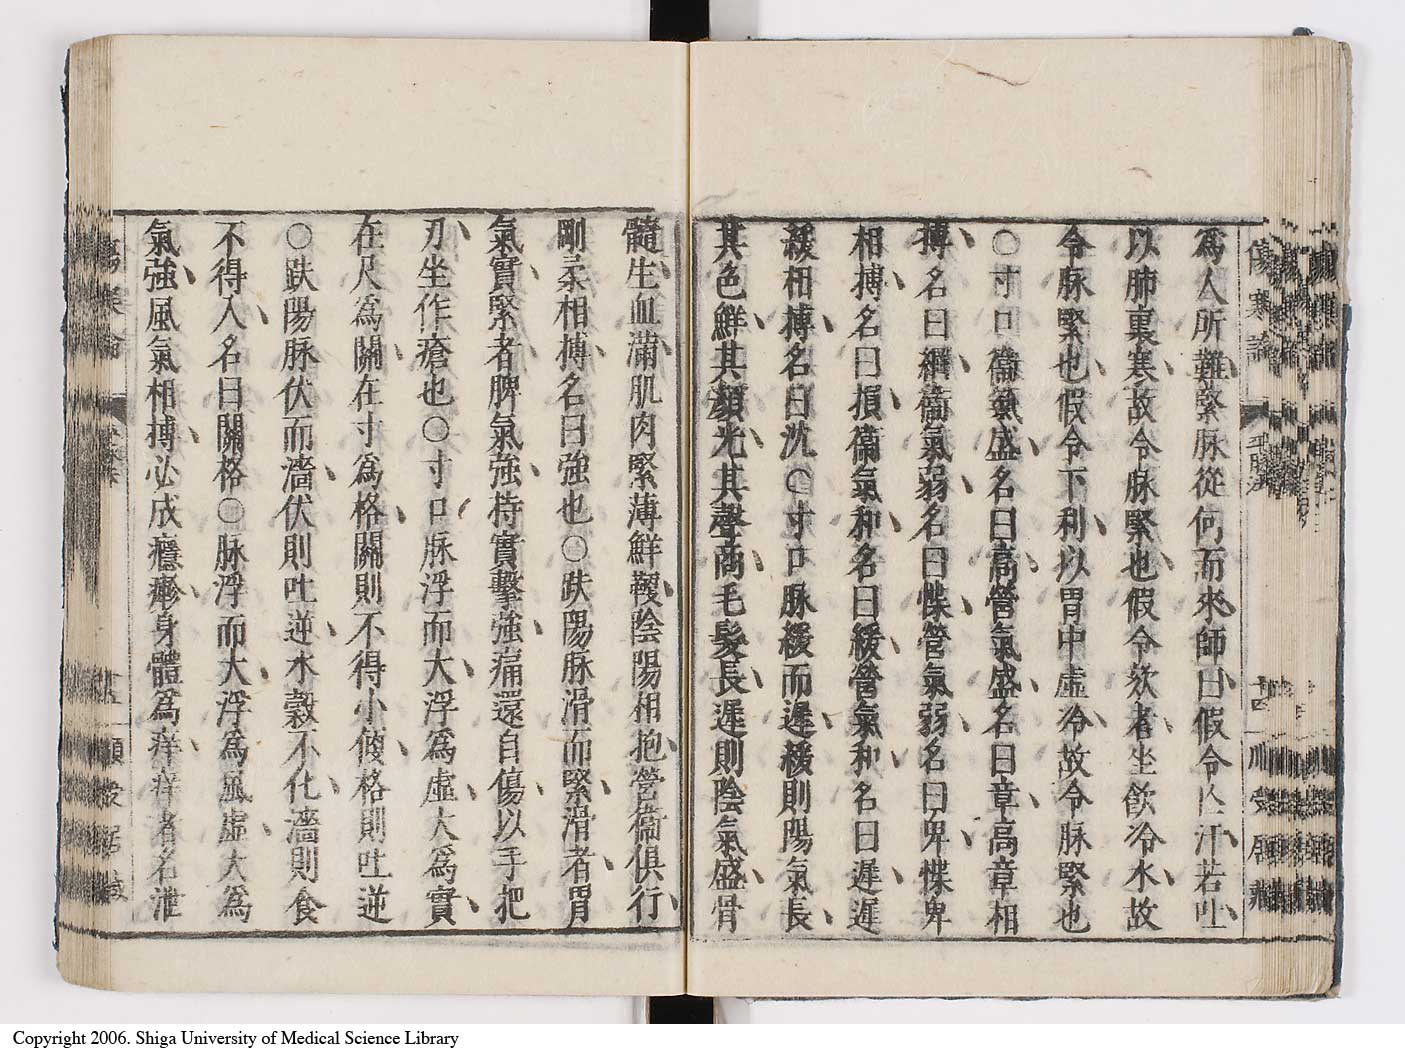 爲人所難緊脉從何而來師曰假令亾汗若吐
以肺裏寒故令脉緊也假令欬者坐飲冷水故
令脉緊也假令下利以胃中虛冷故令脉緊也
〇寸口衞氣盛名曰高營氣盛名曰章高章相
搏名曰綱衞氣弱名曰惵營氣弱名曰卑惵卑
相搏名曰損衞氣和名曰緩營氣和名曰遲遲
緩相搏名曰沈〇寸口脉緩而遲緩則陽氣長
其色鮮其顏光其聲商毛髮長遲則陰氣盛骨
髓生血滿肌肉緊薄鮮鞕陰陽相抱營衞俱行
剛柔相搏名曰強也〇趺陽脉滑而緊滑者胃
氣實緊者脾氣強持實擊強痛還自傷以手把
刃坐作瘡也〇寸口脉浮而大浮爲虛大爲實
在尺爲關在寸爲格關則不得小便格則吐逆
〇趺陽脉伏而濇伏則吐逆水穀不化濇則食
不得入名曰關格〇脉浮而大浮爲風虛大爲
氣強風氣相搏必成癮瘮身體爲痒痒者名泄
傷寒論
平脉法
十四
Copyright 2006. Shiga University of Medical Science Library